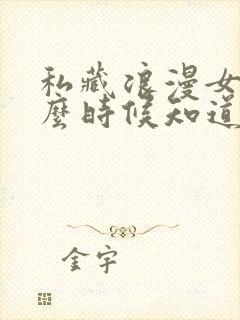 私藏浪漫女
麼時候知道
金宇